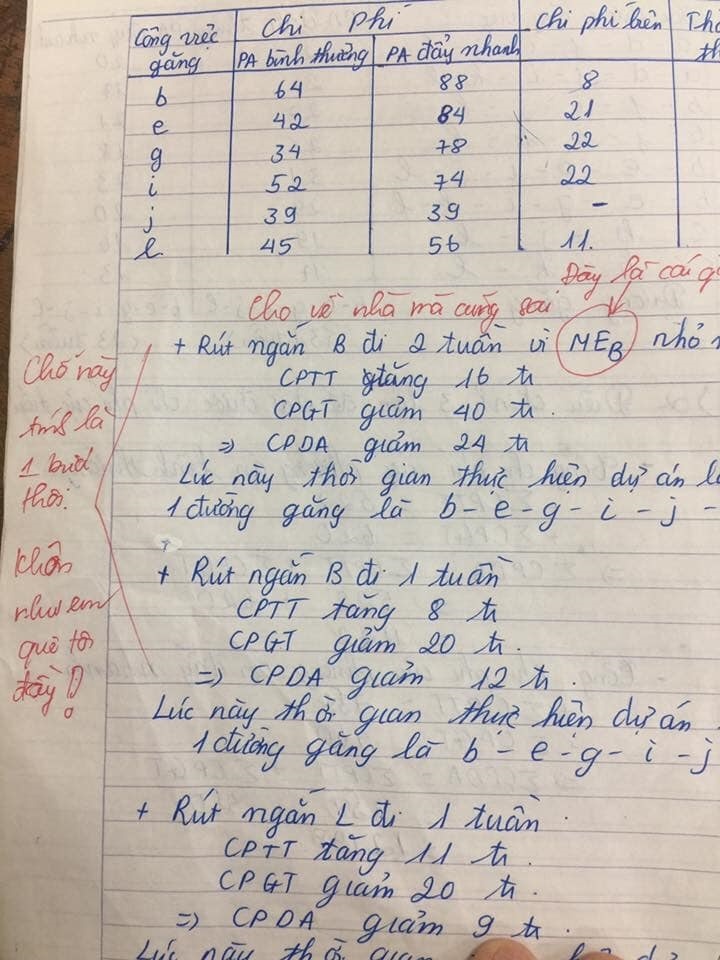 Công việc găng | Chi Phí | Chi phí biên
PA bình thường | PA đẩy nhanh
b | 64 | 88 | 8
e | 42 | 84 | 21
g | 34 | 78 | 22
i | 52 | 74 | 22
j | 39 | 39 | -
l | 45 | 56 | 11.
Đây là cái gì
Cho về nhà mà cũng sai.
+ Rút ngắn B đi 2 tuần vì MEB nhỏ
CPTT tăng 16 tr
CPGT giảm 40 tr.
=> CPDA giảm 24 tr
Lúc này thời gian thực hiện dự án
1 đường găng là b - e - g - i - j -
Chỗ này
tính là
1 bước
thôi.
Khôn
như em
quê tôi
đầy!
+ Rút ngắn B đi 1 tuần
CPTT tăng 8 tr
CPGT giảm 20 tr.
=> CPDA giảm 12 tr.
Lúc này thời gian thực hiện dự án
1 đường găng là b - e - g - i - j
+ Rút ngắn L đi 1 tuần.
CPTT tăng 11 tr.
CPGT giảm 20 tr.
=> CPDA giảm 9 tr.
Lúc này thời gian